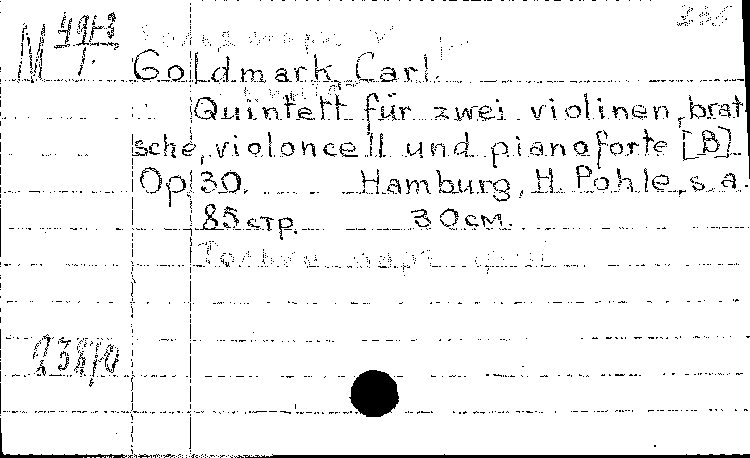 Goldmark, Carl.
Quintett für zwei violinen, brat
sche, violoncell und pianoforte [B]
Op. 30. Hamburg, H. Pohle, s. a.
85 стр. 30 см.
Только парт. ф-п